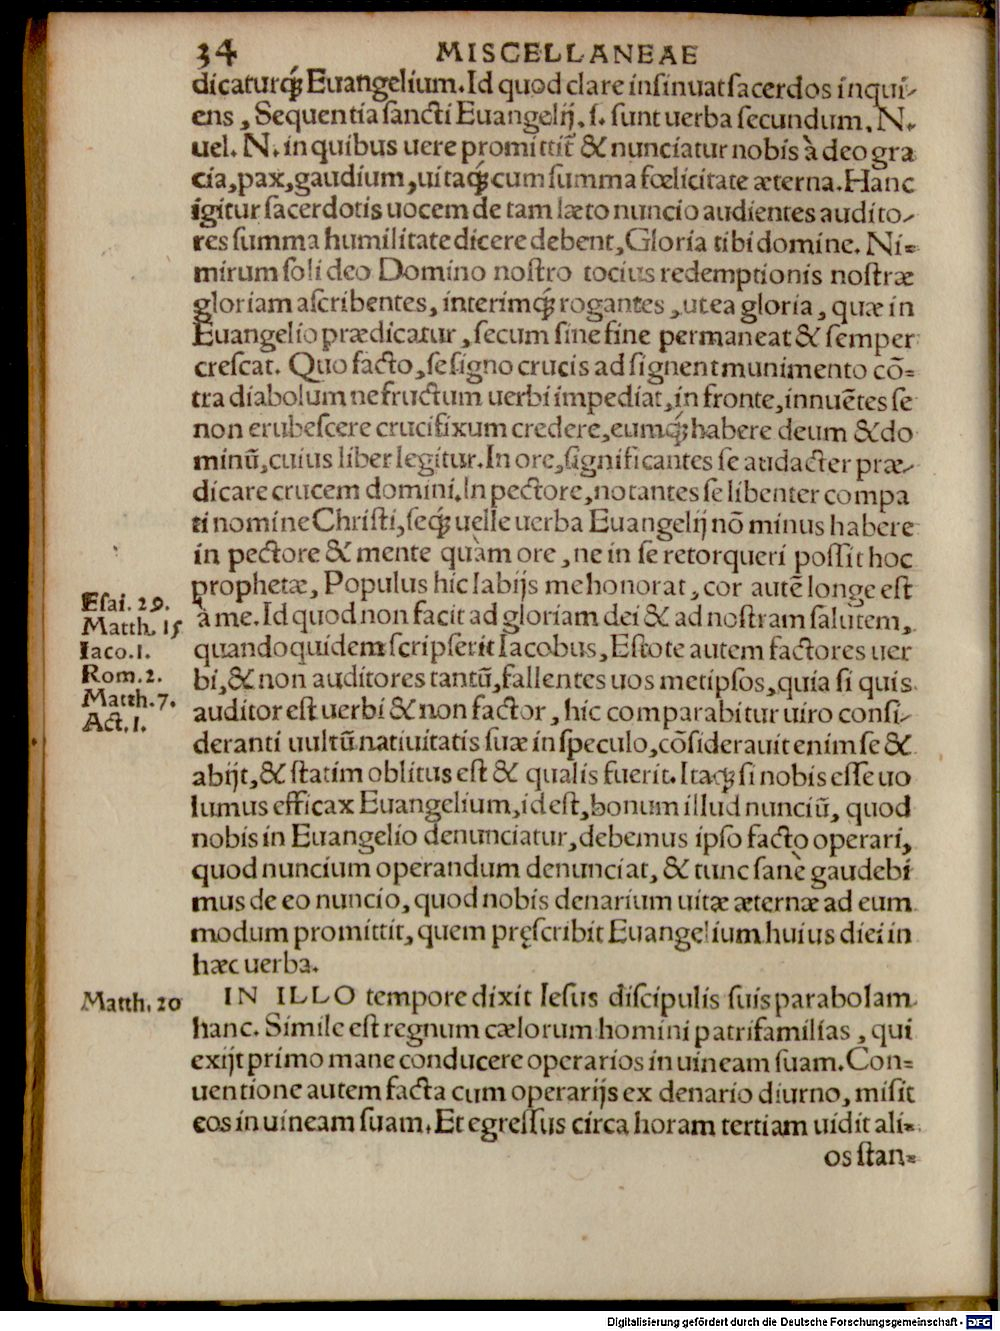 34 MISCELLANEAE
dicaturq́ꝫ Euangelium. Id quod clare inſinuat ſacerdos inqui-
ens, Sequentia ſancti Euangelij. i. ſunt uerba ſecundum. N.
uel. N. in quibus uere promittit̃ & nunciatur nobis à deo gra
cia, pax, gaudium, uitaq́ꝫ cum ſumma fœlicitate æterna. Hanc
igitur ſacerdotis uocem de tam læto nuncio audientes audito-
res ſumma humilitate dicere debent, Gloria tibi domine. Ni=
mirum ſoli deo Domino noſtro tocius redemptionis noſtræ
gloriam aſcribentes, interimq́ꝫ rogantes, ut ea gloria, quæ in
Euangelio prædicatur, ſecum ſine fine permaneat & ſemper
creſcat. Quo facto, ſe ſigno crucis ad ſignent munimento cõ=
tra diabolum ne fructum uerbi impediat, in fronte, innuẽtes ſe
non erubeſcere crucifixum credere, eumq́ꝫ habere deum & do
minũ, cuius liber legitur. In ore, ſignificantes ſe audacter præ-
dicare crucem domini. In pectore, notantes ſe libenter compa
ti nomine Chriſti, ſeq́ꝫ uelle uerba Euangelij nõ minus habere
in pectore & mente quàm ore, ne in ſe retorqueri poſſit hoc
prophetæ, Populus hic labijs me honorat, cor autẽ longe eſt
à me. Id quod non facit ad gloriam dei & ad noſtram ſalutem,
quandoquidem ſcripſerit Iacobus, Eſtote autem factores uer
bi, & non auditores tantũ, fallentes uos metipſos, quia ſi quis
auditor eſt uerbi & non factor, hic comparabitur uiro conſi-
deranti uultũ natiuitatis ſuæ in ſpeculo, cõſiderauit enim ſe &
abijt, & ſtatim oblitus eſt & qualis fuerit. Itaq́ꝫ ſi nobis eſſe uo
lumus efficax Euangelium, id eſt, bonum illud nunciũ, quod
nobis in Euangelio denunciatur, debemus ipſo facto operari,
quod nuncium operandum denunciat, & tunc ſanè gaudebi
mus de eo nuncio, quod nobis denarium uitæ æternæ ad eum
modum promittit, quem pręſcribit Euangelium huius diei in
hæc uerba.
Eſai. 29.
Matth. 15
Iaco. 1.
Rom. 2.
Matth. 7.
Act. 1.
Matth. 20
IN ILLO tempore dixit Ieſus diſcipulis ſuis parabolam
hanc. Simile eſt regnum cælorum homini patrifamilias, qui
exijt primo mane conducere operarios in uineam ſuam. Con=
uentione autem facta cum operarijs ex denario diurno, miſit
eos in uineam ſuam. Et egreſſus circa horam tertiam uidit ali=
os ſtan=
Digitalisierung gefördert durch die Deutsche Forschungsgemeinschaft - DFG